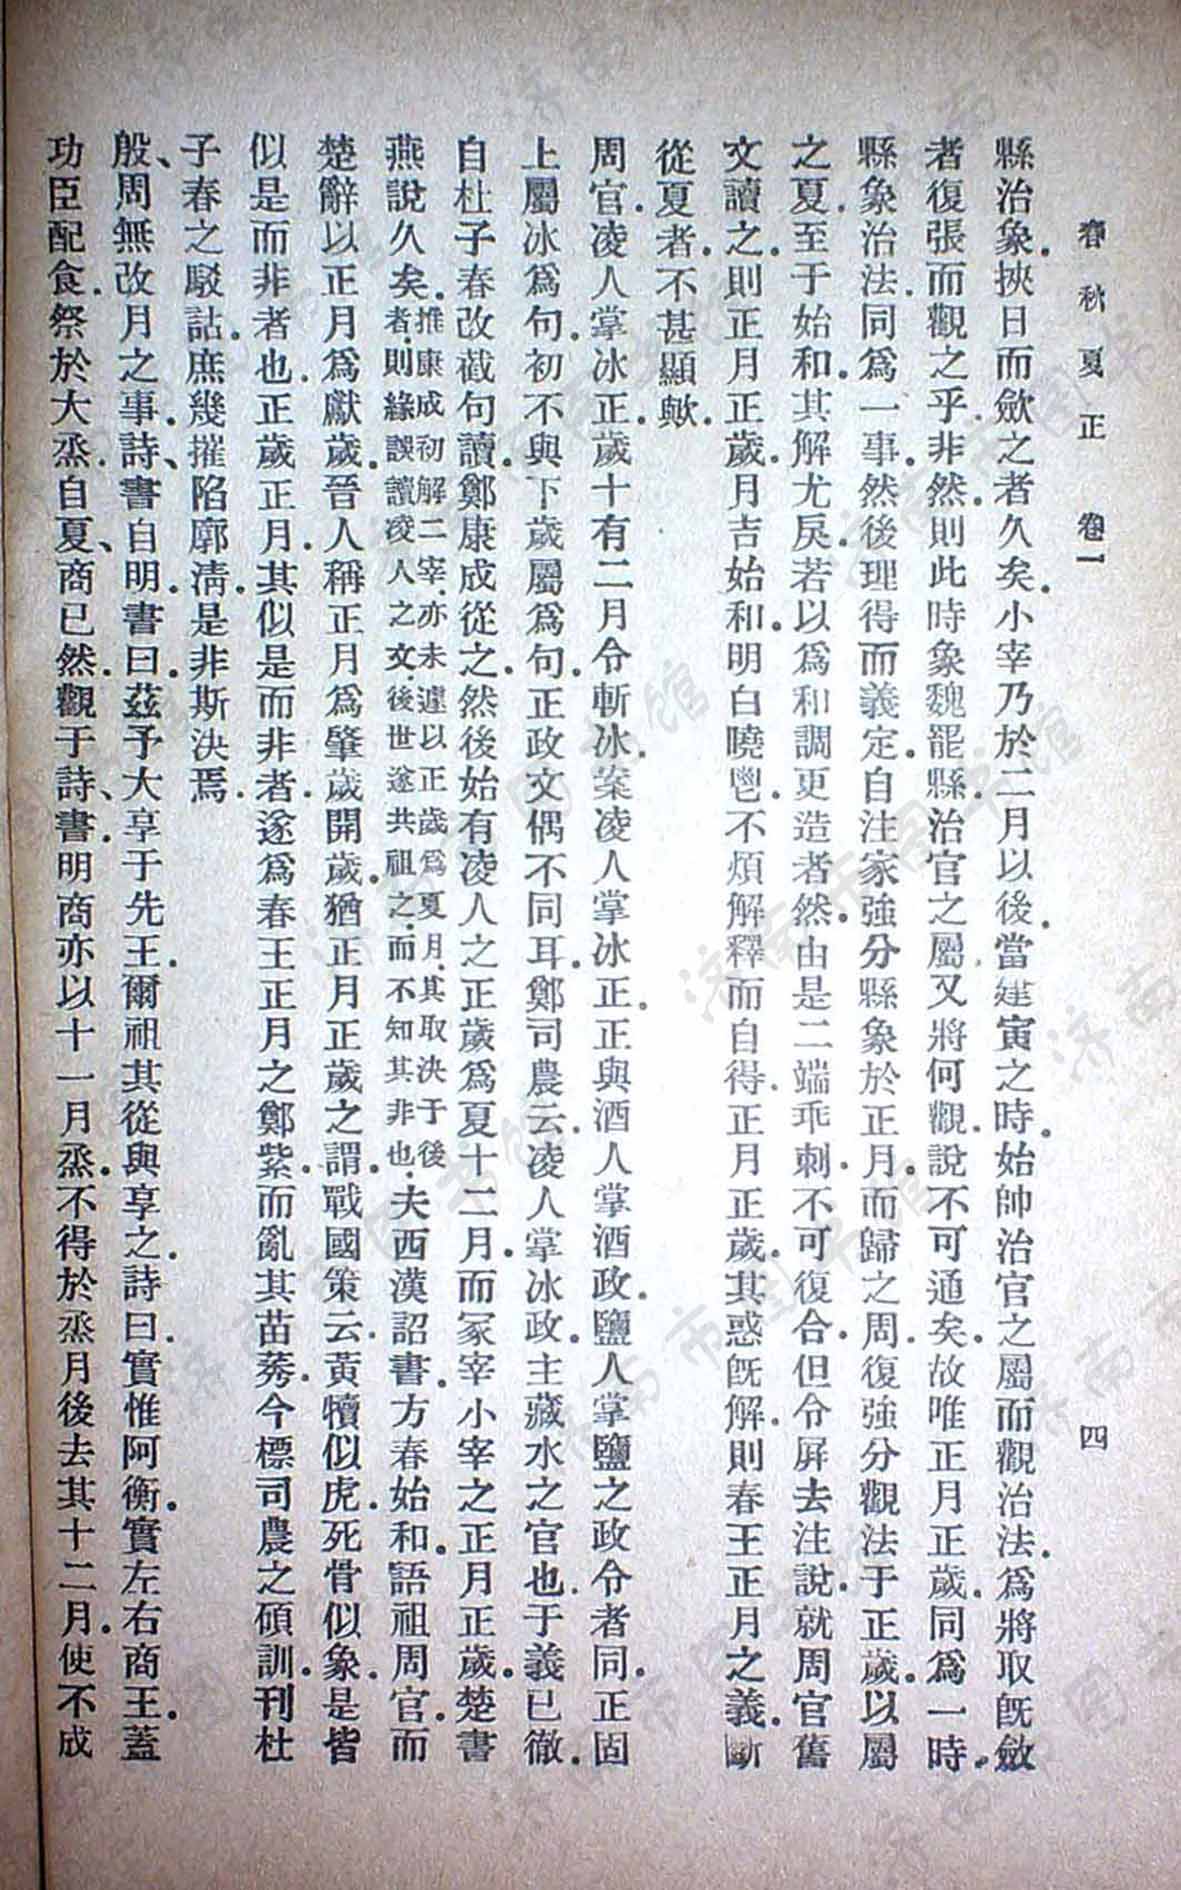 春秋夏正　卷一　四
縣治象.挾日而斂之者久矣.小宰乃於二月以後.當建寅之時.始帥治官之屬而觀治法.爲將取旣斂
者復張而觀之乎.非然.則此時象魏罷縣.治官之屬.又將何觀.說不可通矣.故唯正月正歲.同爲一時.
縣象治法.同爲一事.然後理得而義定.自注家強分縣象於正月.而歸之周.復強分觀法于正歲.以屬
之夏.至于始和.其解尤戾.若以爲和調更造者然.由是二端乖刺.不可復合.但令屛去注說.就周官舊
文讀之.則正月正歲.月吉始和.明白曉鬯.不煩解釋而自得.正月正歲.其惑旣解.則春王正月之義.斷
從夏者.不甚顯歟.
周官.凌人掌冰正.歲十有二月令斬冰.案凌人掌冰正.正與酒人掌酒政.鹽人掌鹽之政令者同.正固
上屬冰爲句.初不與下歲屬爲句.正政文偶不同耳.鄭司農云.凌人掌冰政.主藏水之官也.于義已徹.
自杜子春改截句讀.鄭康成從之.然後始有凌人之正歲爲夏十二月.而冢宰小宰之正月正歲.楚書
燕說久矣.推康成初解二宰.亦未遽以正歲爲夏月.其取決于後者.則緣誤讀凌人之文.後世遂共祖之.而不知其非也.夫西漢詔書.方春始和.語祖周官.而
楚辭以正月爲獻歲.晉人稱正月爲肇歲開歲.猶正月正歲之謂.戰國策云.黃犢似虎.死骨似象.是皆
似是而非者也.正歲正月.其似是而非者.遂爲春王正月之鄭紫.而亂其苗莠.今標司農之碩訓.刊杜
子春之駁詁.庶幾摧陷廓淸.是非斯決焉.
般、周無改月之事.詩、書自明.書曰.茲予大享于先王.爾祖其從與享之.詩曰.實惟阿衡.實左右商王.蓋
功臣配食.祭於大烝.自夏、商已然.觀于詩、書.明商亦以十一月烝.不得於烝月後去其十二月.使不成